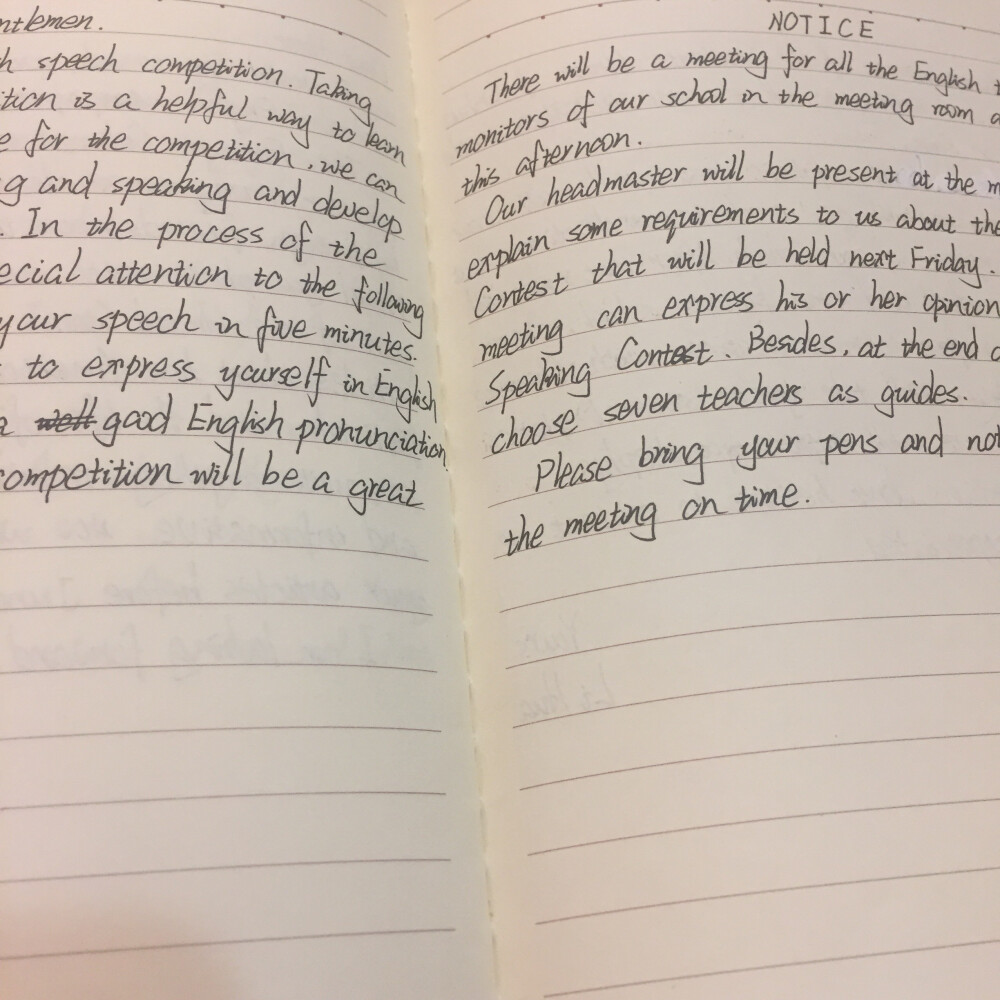 ntlemen.
h speech competition. Taking
ition is a helpful way to learn
e for the competition, we can
g and speaking and develop
. In the process of the
ecial attention to the following
your speech in five minutes.
to express yourself in English
a well good English pronunciation
competition will be a great
NOTICE
There will be a meeting for all the English t
monitors of our school in the meeting room a
this afternoon.
Our headmaster will be present at the m
explain some requirements to us about the
Contest that will be held next Friday.
meeting can express his or her opinion
Speaking Contest. Besides, at the end o
choose seven teachers as guides.
Please bring your pens and not
the meeting on time.